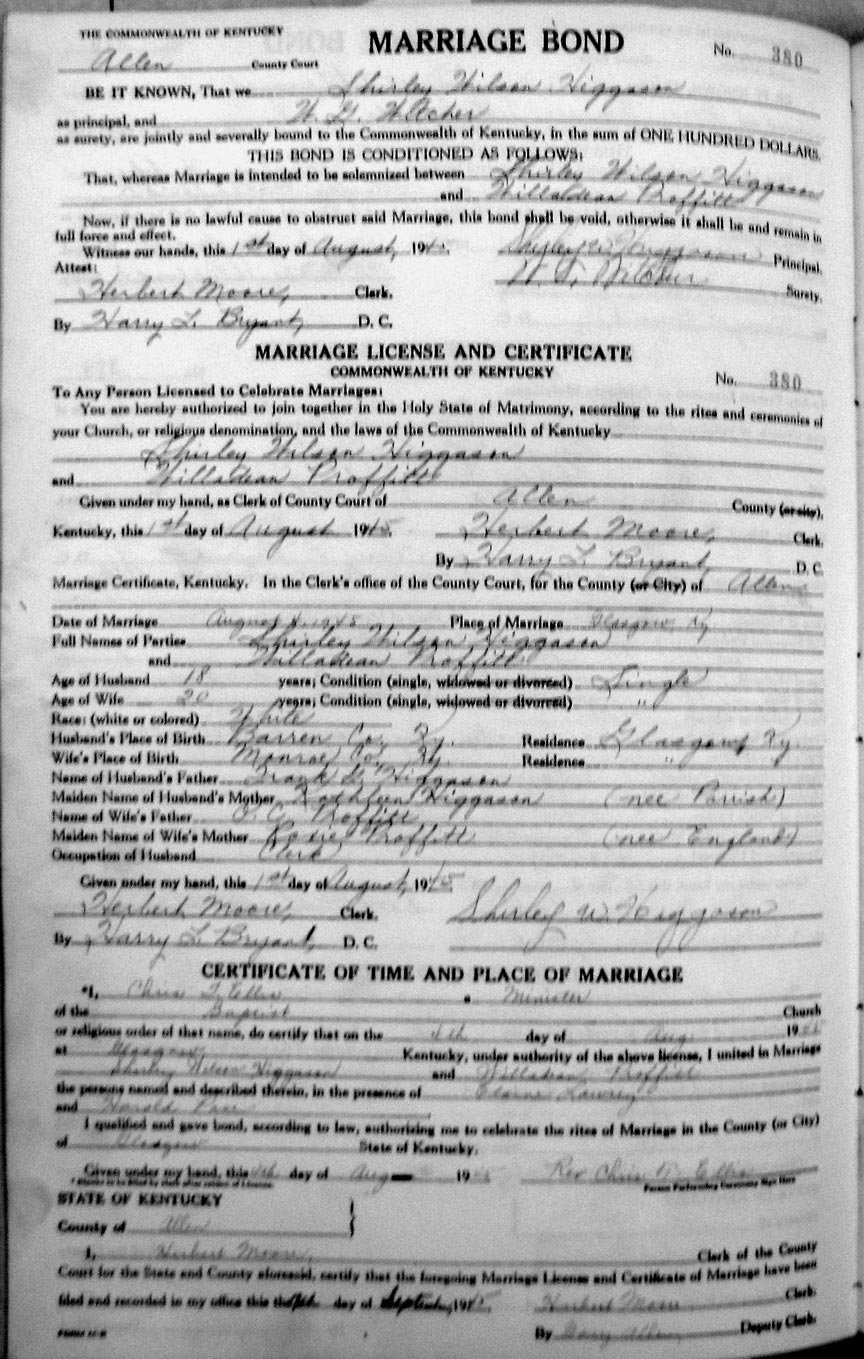 THE COMMONWEALTH OF KENTUCKY
MARRIAGE BOND
No. 380
Allen County Court
BE IT KNOWN, That we Shirley Wilson Higgason
as principal, and
as surety, are jointly and severally bound to the Commonwealth of Kentucky, in the sum of ONE HUNDRED DOLLARS.
THIS BOND IS CONDITIONED AS FOLLOWS:
That, whereas Marriage is intended to be solemnized between Shirley Wilson Higgason
and Willadean Proffitt
Now, if there is no lawful cause to obstruct said Marriage, this bond shall be void, otherwise it shall be and remain in
full force and effect.
Witness our hands, this 1st day of August, 1945. Shirley W. Higgason Principal.
Attest:
Surety.
Herbert Moore, Clerk.
By Harry L. Bryant, D. C.
MARRIAGE LICENSE AND CERTIFICATE
COMMONWEALTH OF KENTUCKY
No. 380
To Any Person Licensed to Celebrate Marriages:
You are hereby authorized to join together in the Holy State of Matrimony, according to the rites and ceremonies of
your Church, or religious denomination, and the laws of the Commonwealth of Kentucky
Shirley Wilson Higgason
and Willadean Proffitt
Given under my hand, as Clerk of County Court of Allen County (or city),
Kentucky, this 1st day of August 1945. Herbert Moore, Clerk.
By Harry L. Bryant, D. C.
Marriage Certificate, Kentucky. In the Clerk's office of the County Court, for the County (or City) of Allen
Date of Marriage August 4, 1945 Place of Marriage Glasgow, Ky.
Full Names of Parties Shirley Wilson Higgason
and Willadean Proffitt
Age of Husband 18 years; Condition (single, widowed or divorced) Single
Age of Wife 20 years; Condition (single, widowed or divorced) "
Race: (white or colored) White
Husband's Place of Birth Barren Co., Ky. Residence Glasgow, Ky.
Wife's Place of Birth Monroe Co., Ky. Residence " "
Name of Husband's Father Frank G. Higgason
Maiden Name of Husband's Mother Kathleen Higgason (nee Parrish)
Name of Wife's Father Proffitt
Maiden Name of Wife's Mother Rosie Proffitt (nee England)
Occupation of Husband Clerk
Given under my hand, this 1st day of August, 1945
Herbert Moore, Clerk. Shirley W. Higgason
By Harry L. Bryant, D. C.
CERTIFICATE OF TIME AND PLACE OF MARRIAGE
*I, Chris T. Ellis a Minister
of the Baptist Church
or religious order of that name, do certify that on the 4th day of Aug. 1945
at Glasgow, Kentucky, under authority of the above license, I united in Marriage
Shirley Wilson Higgason and Willadean Proffitt
the persons named and described therein, in the presence of Elaine Lowrey
and Harold
I qualified and gave bond, according to law, authorizing me to celebrate the rites of Marriage in the County (or City)
of Glasgow State of Kentucky.
Given under my hand, this 4th day of Aug 1945 Rev Chris T. Ellis
Person Performing Ceremony Sign Here
STATE OF KENTUCKY
County of Allen
I, Herbert Moore, Clerk of the County
Court for the State and County aforesaid, certify that the foregoing Marriage License and Certificate of Marriage have been
filed and recorded in my office this the day of September, 1945. Herbert Moore Clerk.
By Deputy Clerk.